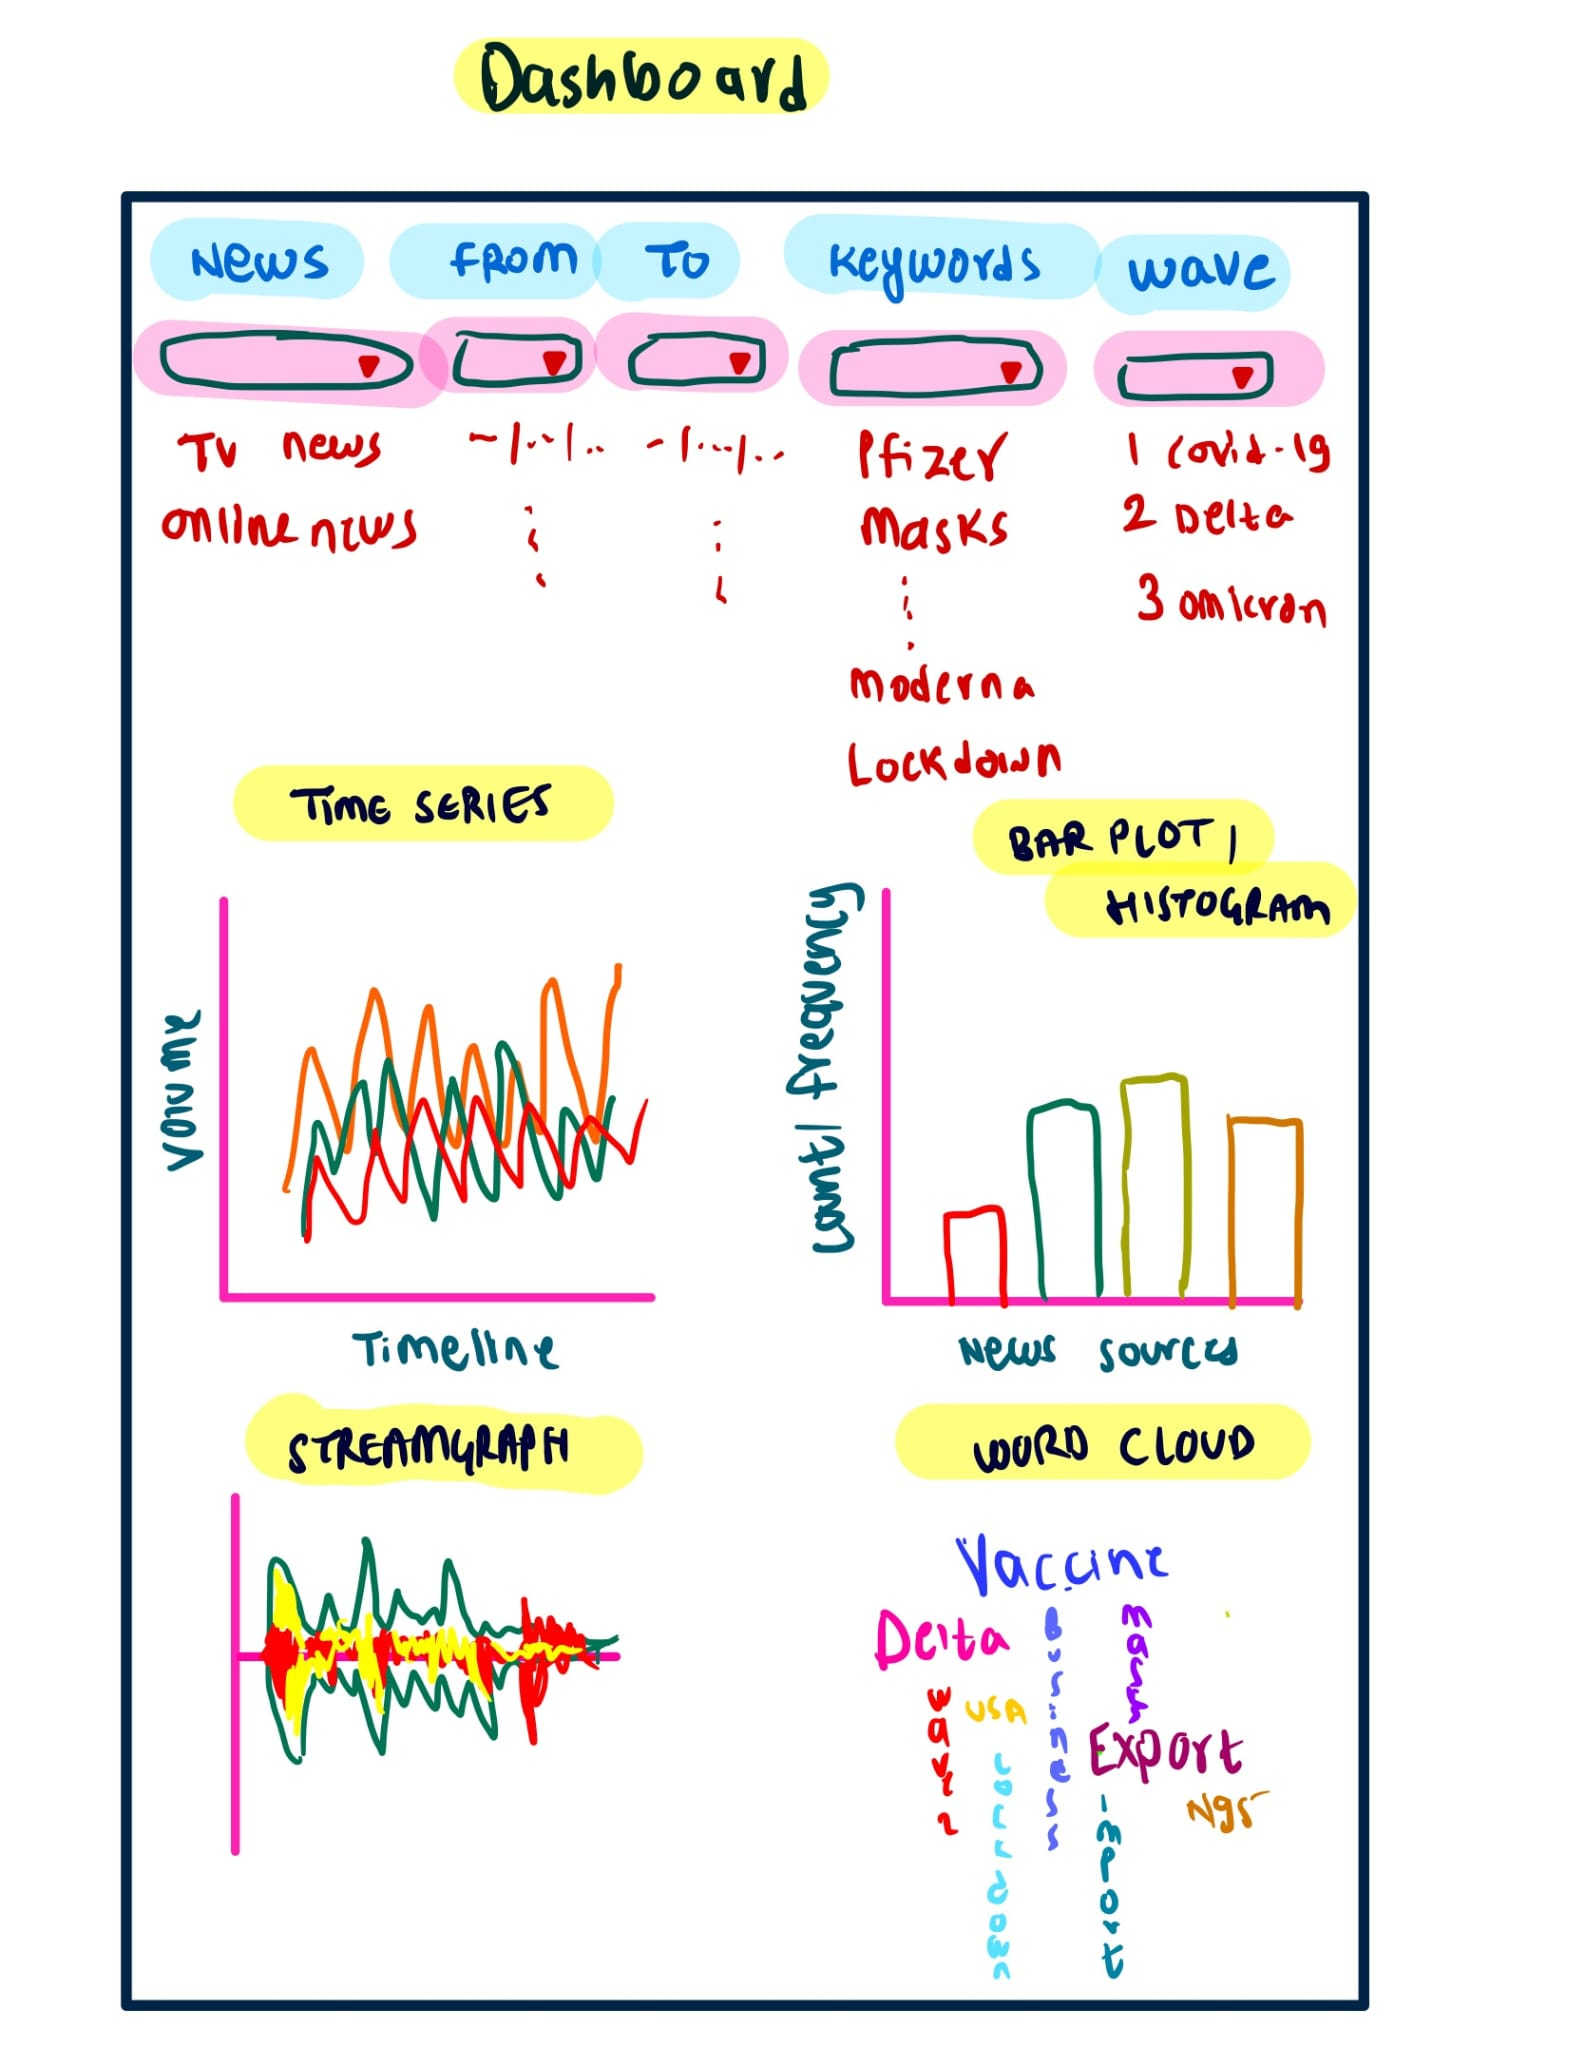 Dashboard
News From To Keywords wave
TV news
online news
Pfizer
Masks
Moderna
Lockdown
1 Covid-19
2 Delta
3 omicron
TIME SERIES
Volume
Timeline
BAR PLOT /
HISTOGRAM
Count/ frequency
News sources
STREAMGRAPH
WORD CLOUD
Vaccine
Delta
Business
USA
Export
import